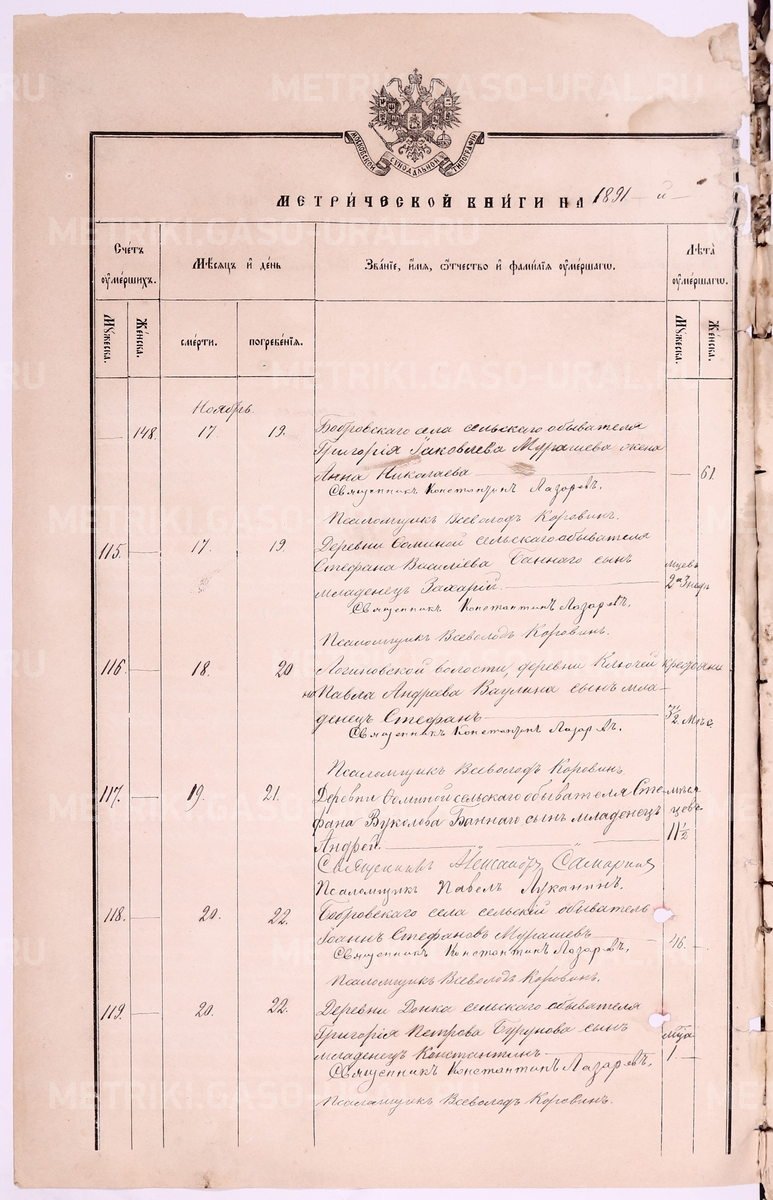 METRIKI.GASO-URAL.RU
МОСКОВСКОЙ СѴНОДАЛЬНОЙ ТИПОГРАФІИ
МЕТРИ́ЧЕСКОЙ КНИ́ГИ НА 1891-й
Сче́тъ ᲂумершихъ.
Мѣсяцъ и де́нь
Зва́нїе, и́мя, ѻ҆́тчество и фами́лїя ᲂуме́ршагѡ.
Лѣта̀ ᲂуме́ршагѡ.
Мꙋ́жеска.
Же́нска.
сме́рти.
погребе́нїѧ.
Мꙋ́жеска.
Же́нска.
Ноябрь
148. 17 19. Бобровскаго села сельскаго обывателя
Григорія Іаковлева Мурашева жена
Анна Николаева — 61
Священникъ Константинъ Лазаревъ.
Псаломщикъ Всеволодъ Коровинъ.
115. 17. 19. Деревни Ооминой сельскаго обывателя
Стефана Василіева Баннаго сынъ
младенецъ Захарій.
Священникъ Константинъ Лазаревъ.
Псаломщикъ Всеволодъ Коровинъ.
116 18. 20 Логиновской волости, деревни Ключей крестьяни
на Павла Андреева Ваулина сынъ мла-
денецъ Стефанъ
Священникъ Константинъ Лазаревъ.
Псаломщикъ Всеволодъ Коровинъ
117. 19. 21. Деревни Ооминой сельскаго обывателя Сте-
фана Вуколова Баннаго сынъ младенецъ
Андрей. 11½
Священникъ Самаринъ
Псаломщикъ Павелъ Луканинъ.
118. 20. 22. Бобровскаго села сельскій обыватель
Іоаннъ Стефановъ Мурашевъ 46.
Священникъ Константинъ Лазаревъ.
Псаломщикъ Всеволодъ Коровинъ.
119. 20. 22. Деревни сельскаго обывателя
Григорія Петрова Бурунова сынъ
младенецъ Константинъ 1.
Священникъ Константинъ Лазаревъ.
Псаломщикъ Всеволодъ Коровинъ.